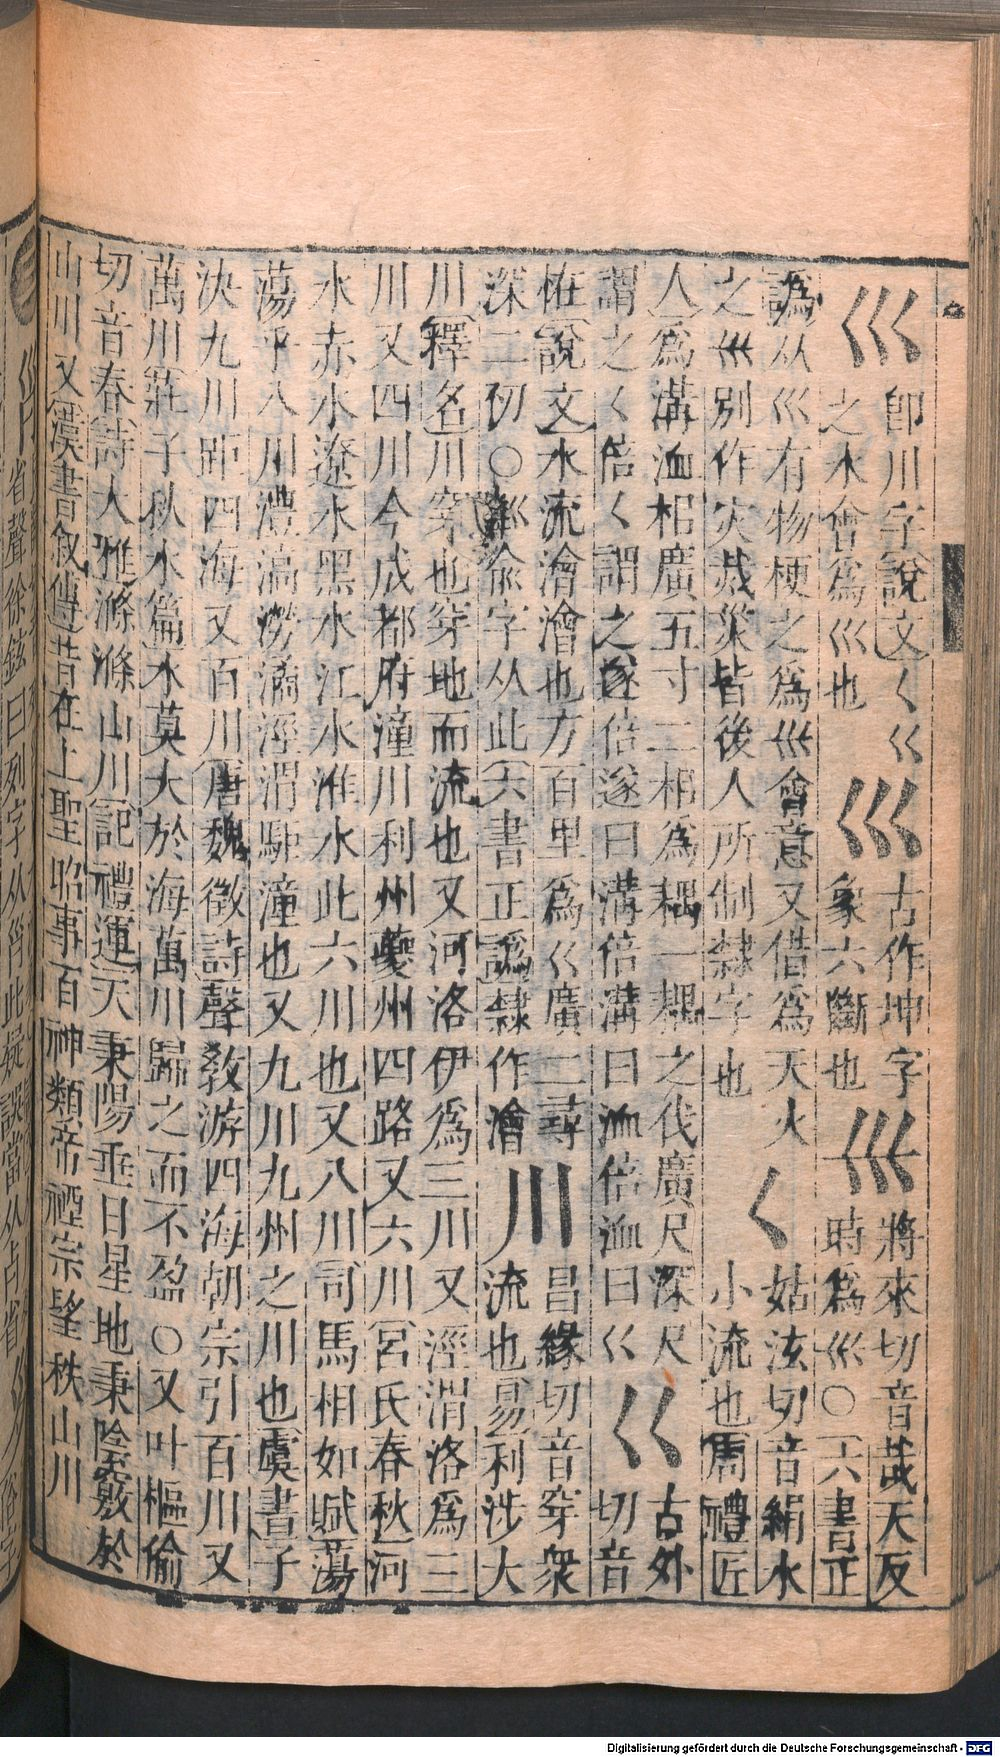 巛
卽川字說文𡿨巜
之水會爲巛也
巛
古作坤字
象六斷也
𡿧
將來切音哉天反
時爲𡿧○六書正
譌从巛有物梗之爲𡿧會意又借爲天火
之𡿧別作灾烖災皆後人所制隸字也
𡿨
姑泫切音絹水
小流也周禮匠
人爲溝洫耜廣五寸二耜爲耦一耦之伐廣尺深尺
謂之𡿨倍𡿨謂之遂倍遂曰溝倍溝曰洫倍洫曰巜
巜
古外
切音
檜說文水流澮澮也方百里爲巜廣二尋
深二仞○俞字从此六書正譌隸作澮
川
昌緣切音穿衆
流也易利涉大
川釋名川穿也穿地而流也又河洛伊爲三川又涇渭洛爲三
川又四川今成都府潼川利州夔州四路又六川呂氏春秋河
水赤水遼水黑水江水淮水此六川也又八川司馬相如賦蕩
蕩乎八川灃滈澇潏涇渭駏潼也又九川九州之川也虞書予
決九川距四海又百川唐魏徵詩聲敎游四海朝宗引百川又
萬川莊子秋水篇水莫大於海萬川歸之而不盈○又叶樞倫
切音春詩大雅滌滌山川記禮運天秉陽垂日星地秉陰竅於
山川又漢書敘傳昔在上聖昭事百神類帝禋宗望秩山川
省聲徐鉉曰列字从𡿪此疑誤當从歺省
俗字
Digitalisierung gefördert durch die Deutsche Forschungsgemeinschaft - DFG